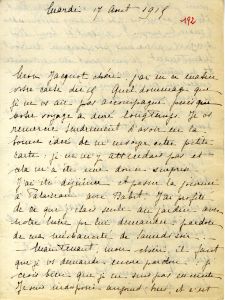 Mardi 17 Aout 1915
192
Mon Jacquot chéri, j'ai eu ce matin
votre carte du 15. Quel dommage que
je ne vous ai pas accompagné puisque
votre voyage a duré longtemps. Je vous
remercie tendrement d'avoir eu la
bonne idée de m'envoyer cette petite
carte; je ne m'y attendais pas et
cela m'a été une douce surprise.
J'ai été déjeuner et passer la journée
à Palaiseau avec Bébé. J'ai profité
de ce que j'étais seule au jardin avec
votre mère pour lui demander pardon
de ma méchanceté de Samedi soir.
Maintenant, mon chéri, il faut
que je vous demande encore pardon. Je
crois bien que je ne suis pas enceinte.
Je suis indisposée aujourd'hui et c'est